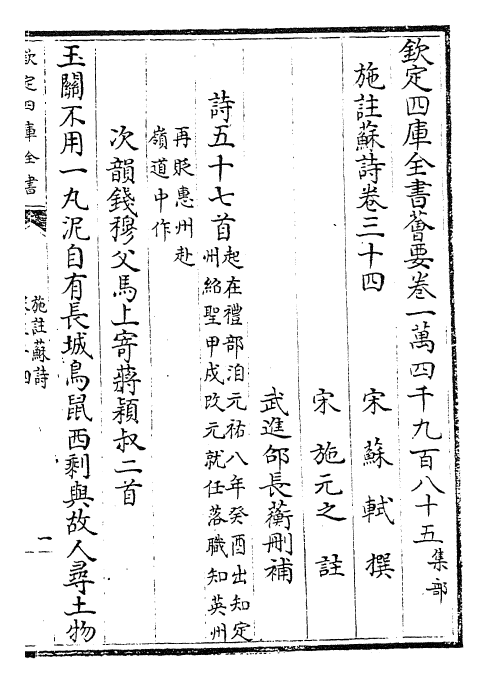 欽定四庫全書薈要卷一萬四千九百八十五集部
施註蘇詩卷三十四
宋蘇軾撰
宋施元之註
武進邵長蘅刪補
詩五十七首起在禮部洎元祐八年癸酉出知定
州紹聖甲戌改元就任落職知英州
再貶惠州赴
嶺道中作
次韻錢穆父馬上寄蔣穎叔二首
玉關不用一丸泥自有長城鳥鼠西剩與故人尋土物
欽定四庫全書
施註蘇詩
一